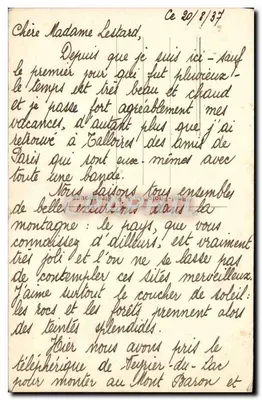 Ce 20/8/37
Chère Madame Lestard,
Depuis que je suis ici - sauf
le premier jour qui fut pluvieux -
le temps est très beau et chaud
et je passe fort agréablement mes
vacances, d'autant plus que j'ai
retrouvé à Talloires des amis de
Paris qui sont eux-mêmes avec
toute une bande.
Nous faisons tous ensembles
de belles excursions dans la
montagne : le pays, que vous
connaissez d'ailleurs, est vraiment
très joli et l'on ne se lasse pas
de contempler ces sites merveilleux.
J'aime surtout le coucher de soleil :
les rocs et les forêts prennent alors
des teintes splendides.
Hier nous avons pris le
téléphérique de Veyrier-du-Lac
pour monter au Mont Baron et